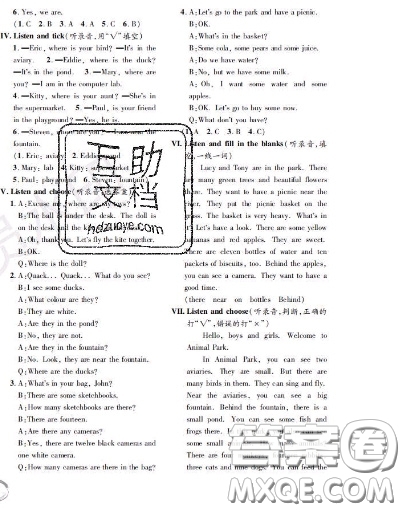 6. Yes, we are.
(1. C 2. B 3. A 4. A 5. C 6. B)
IV. Listen and tick(听录音,用"√"填空)
1. —Eric, where is your bird? —It's in the
aviary. 2. —Eddie, where is the duck?
—It's in the pond. 3. —Mary, where are
you? —I am in the computer lab.
4. —Kitty, where is your aunt? —She's in
the supermarket. 5. —Paul, is your friend
in the playground? —Yes, he is.
6. —Steven, where are you? —I am near the
fountain.
(1. Eric; aviary 2. Eddie; pond
3. Mary; lab 4. Kitty; supermarket
5. Paul; playground 6. Steven; fountain)
V. Listen and choose(听录音,选答案)
1. A: Excuse me, where are my toys?
B: The ball is under the desk. The doll is
on the desk and the kite
A: Oh, thank you. Let's fly the kite together.
B: OK.
Q: Where is the doll?
2. A: Quack... Quack... What do you see?
B: I see some ducks.
A: What colour are they?
B: They are white.
A: Are they in the pond?
B: No, they are not.
A: Are they in the fountain?
B: No. Look, they are near the fountain.
Q: Where are the ducks?
3. A: What's in your bag, John?
B: There are some sketchbooks.
A: How many sketchbooks are there?
B: There are fourteen.
A: Are there any cameras?
B: Yes, there are twelve black cameras and
one white camera.
Q: How many cameras are there in the bag?
4. A: Let's go to the park and have a picnic.
B: OK.
A: What's in the basket?
B: Some cola, some pears and some juice.
A: Do we have water?
B: No, but we have some milk.
A: Oh, I want some water and some
apples.
B: OK. Let's go to buy some now.
Q: What don't you have?
(1. A 2. C 3. B 4. C)
VI. Listen and fill in the blanks(听录音,填
空,一线一词)
Lucy and Tony are in the park. There
are many green trees and beautiful flowers
there. They want to have a picnic near the
river. They put the picnic basket on the
grass. The basket is very heavy. What's in
it? Let's have a look. There are some yellow
bananas and red apples. They are sweet.
There are eleven bottles of water and ten
packets of biscuits, too. Behind the apples,
you can see a camera. They want to have a
good time.
(there near on bottles Behind)
VII. Listen and choose(听录音,判断,正确的
打"√",错误的打"×")
Hello, boys and girls. Welcome to
Animal Park.
In Animal Park, you can see two
aviaries. They are small. But there are
many birds in them. They can sing and fly.
Near the aviaries, you can see a big
fountain. Behind the fountain, there is a
small pond. You can see some fish and
frogs there.
some small
fountain
three cats and nine dogs. You can feed the
互助文档
hdzuoye.com
答案卷
MXQE.COM
MXQE.COM